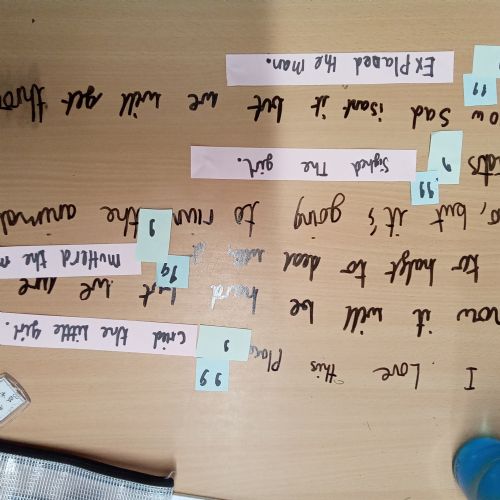 I Love this Place , 99 cried the Little girl.
now it will be hard but we are
to halft to deal , 99 mutterd the m
o, but it's going to ruin the animal
tats , 99 Sighed The girl.
ow sad isant it but we will get throu
, 99 ExPlaned the man.